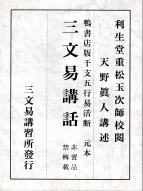 利生堂重松玉次師校閲
天野眞人講述
鴨書店版干支五行易活断 元本
三文易講話
非賣品
禁轉載
三文易講習所發行